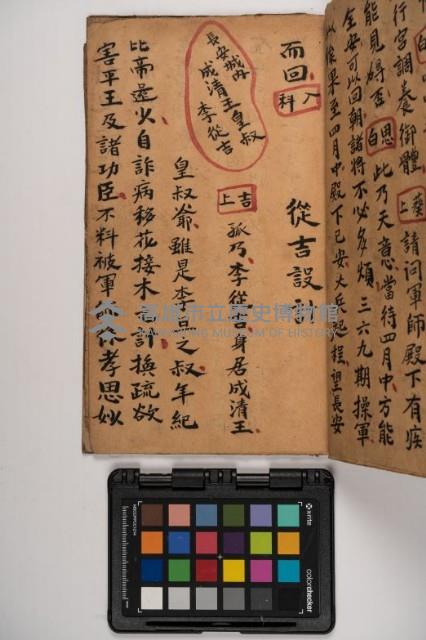 行宮調養御體〇葵上請问軍師殿下有疾
能見碍否〇恩白此乃天意當待四月中方能
全安可以回朝諸將不必多煩三六九期操軍
以後果至四月中殿下已安大兵起程望長安
而回〇入科
從吉設計
長安城内
成清王皇叔
李從吉
吉上孤乃李從吉身居成清王
皇叔爺雖是李之叔年紀
比帝盛火自詐病移花接木計換疏欲
害平王及諸功臣不料被軍孝思妙
高雄市立歷史博物館
KAOHSIUNG MUSEUM OF HISTORY
x-rite
colorchecker